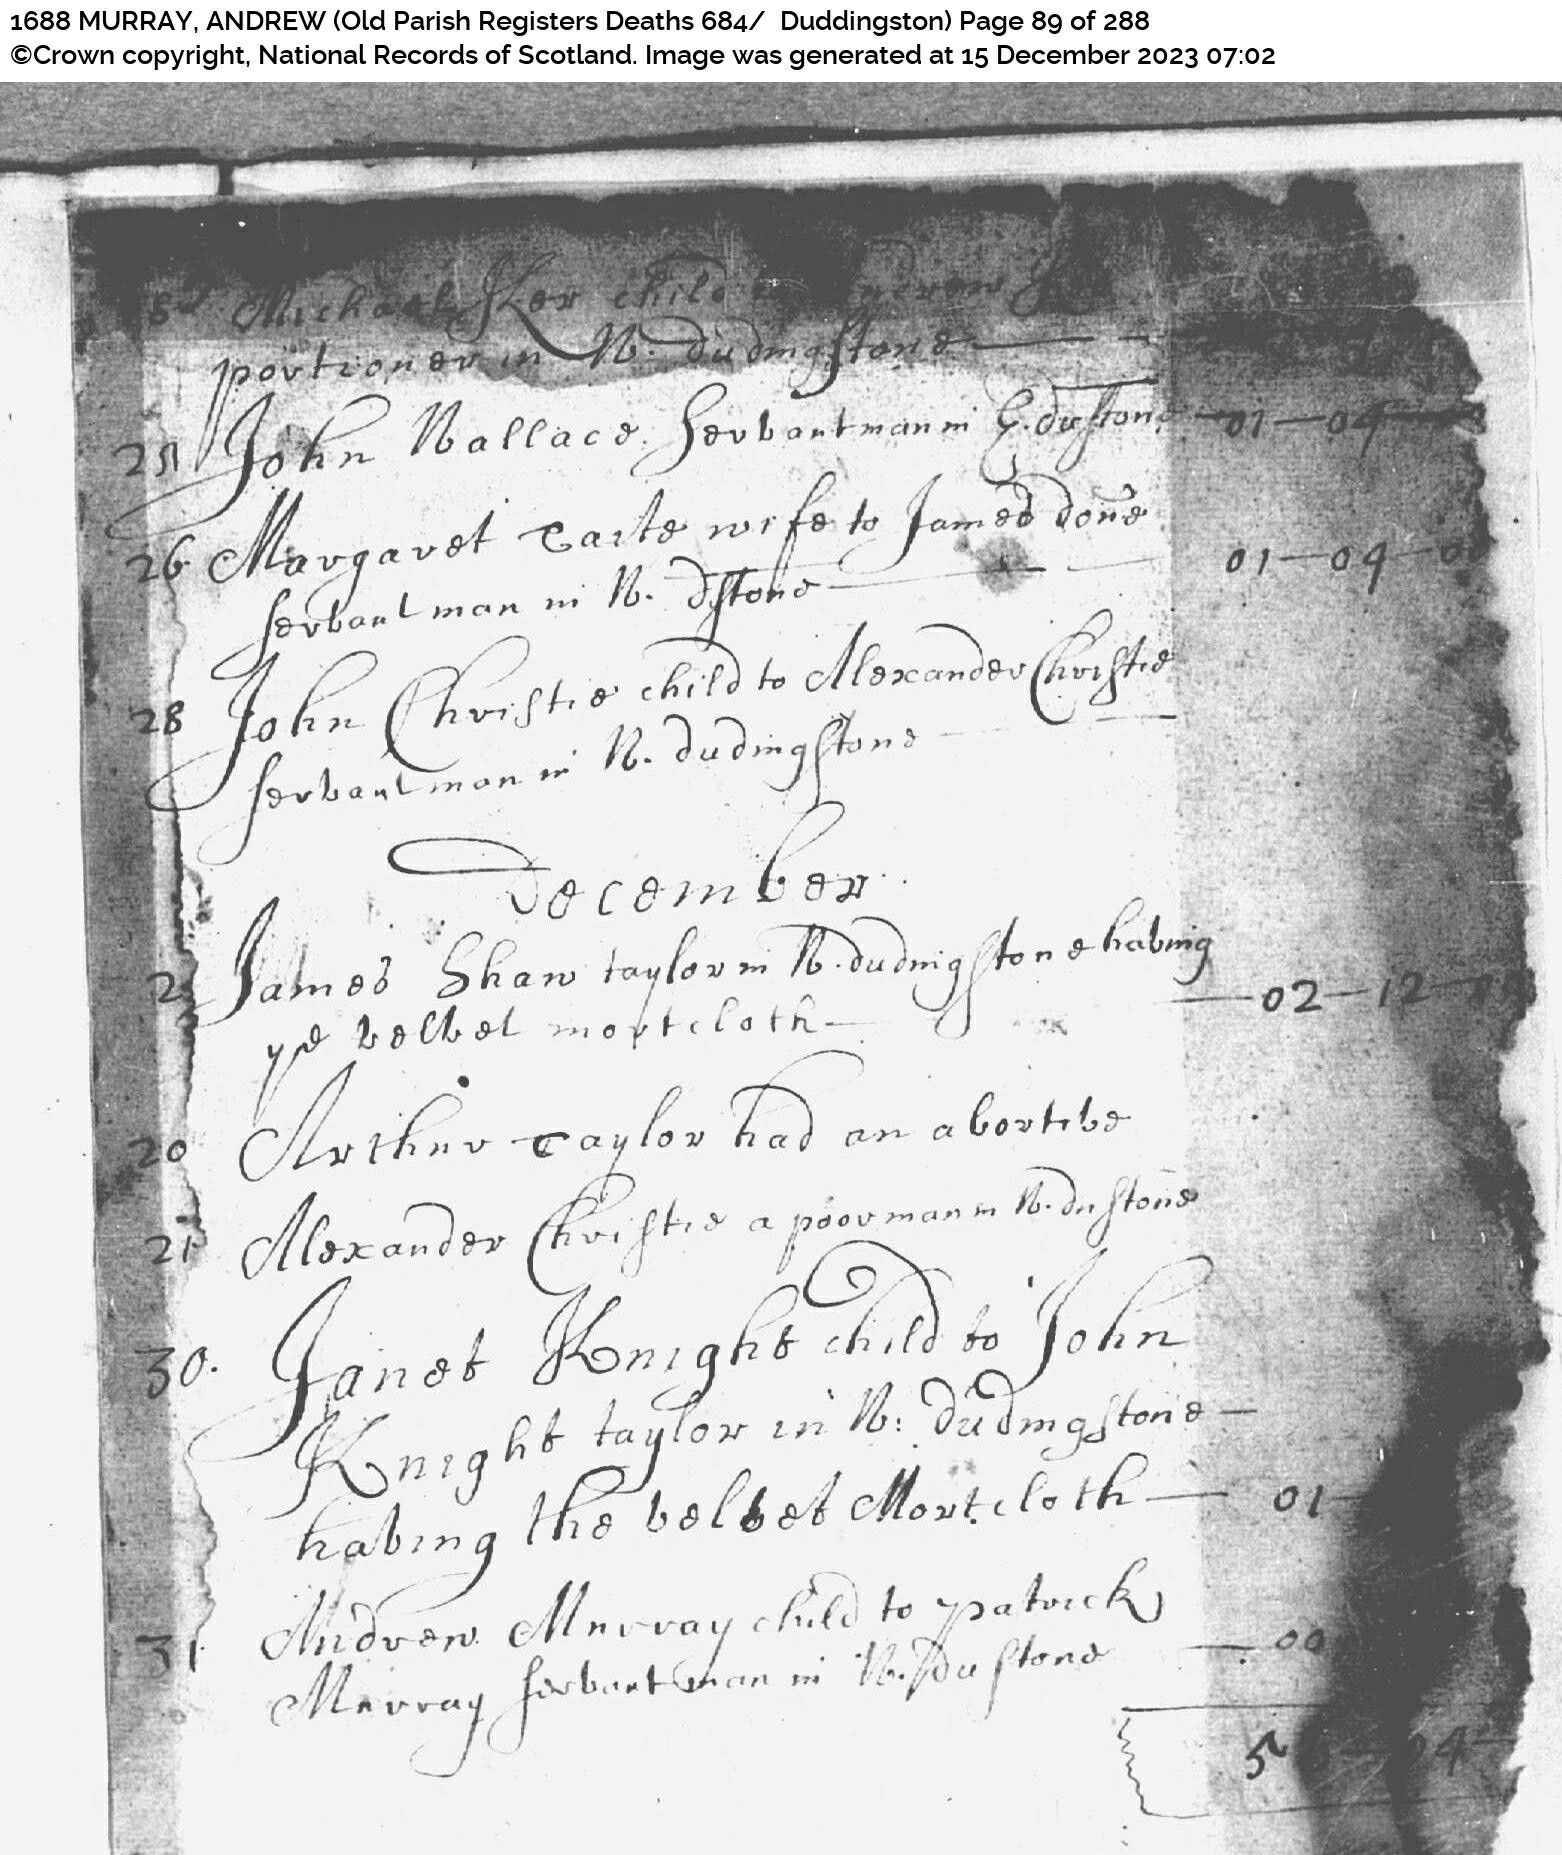 1688 MURRAY, ANDREW (Old Parish Registers Deaths 684/ Duddingston) Page 89 of 288
©Crown copyright, National Records of Scotland. Image was generated at 15 December 2023 07:02
Michael Ker child
portioner in W. dudingstone
25 John Wallace Servantman in E. dustone 01—04
26 Margaret Tarte wife to James done
servant man in W. dstone 01—04—00
28 John Christie child to Alexander Christie
servant man in W. dudingstone
December
2 James Shaw taylor in W. dudingstone having
ye velvet mortcloth 02—12
20 Arthur Taylor had an abortive
21 Alexander Christie a poor man in W. dustone
30. Janet Knight child to John
Knight taylor in W: dudingstone
having the velvet Mortcloth 01
31 Andrew Murray child to patrick
Murray servant man in W. dustone 00
04